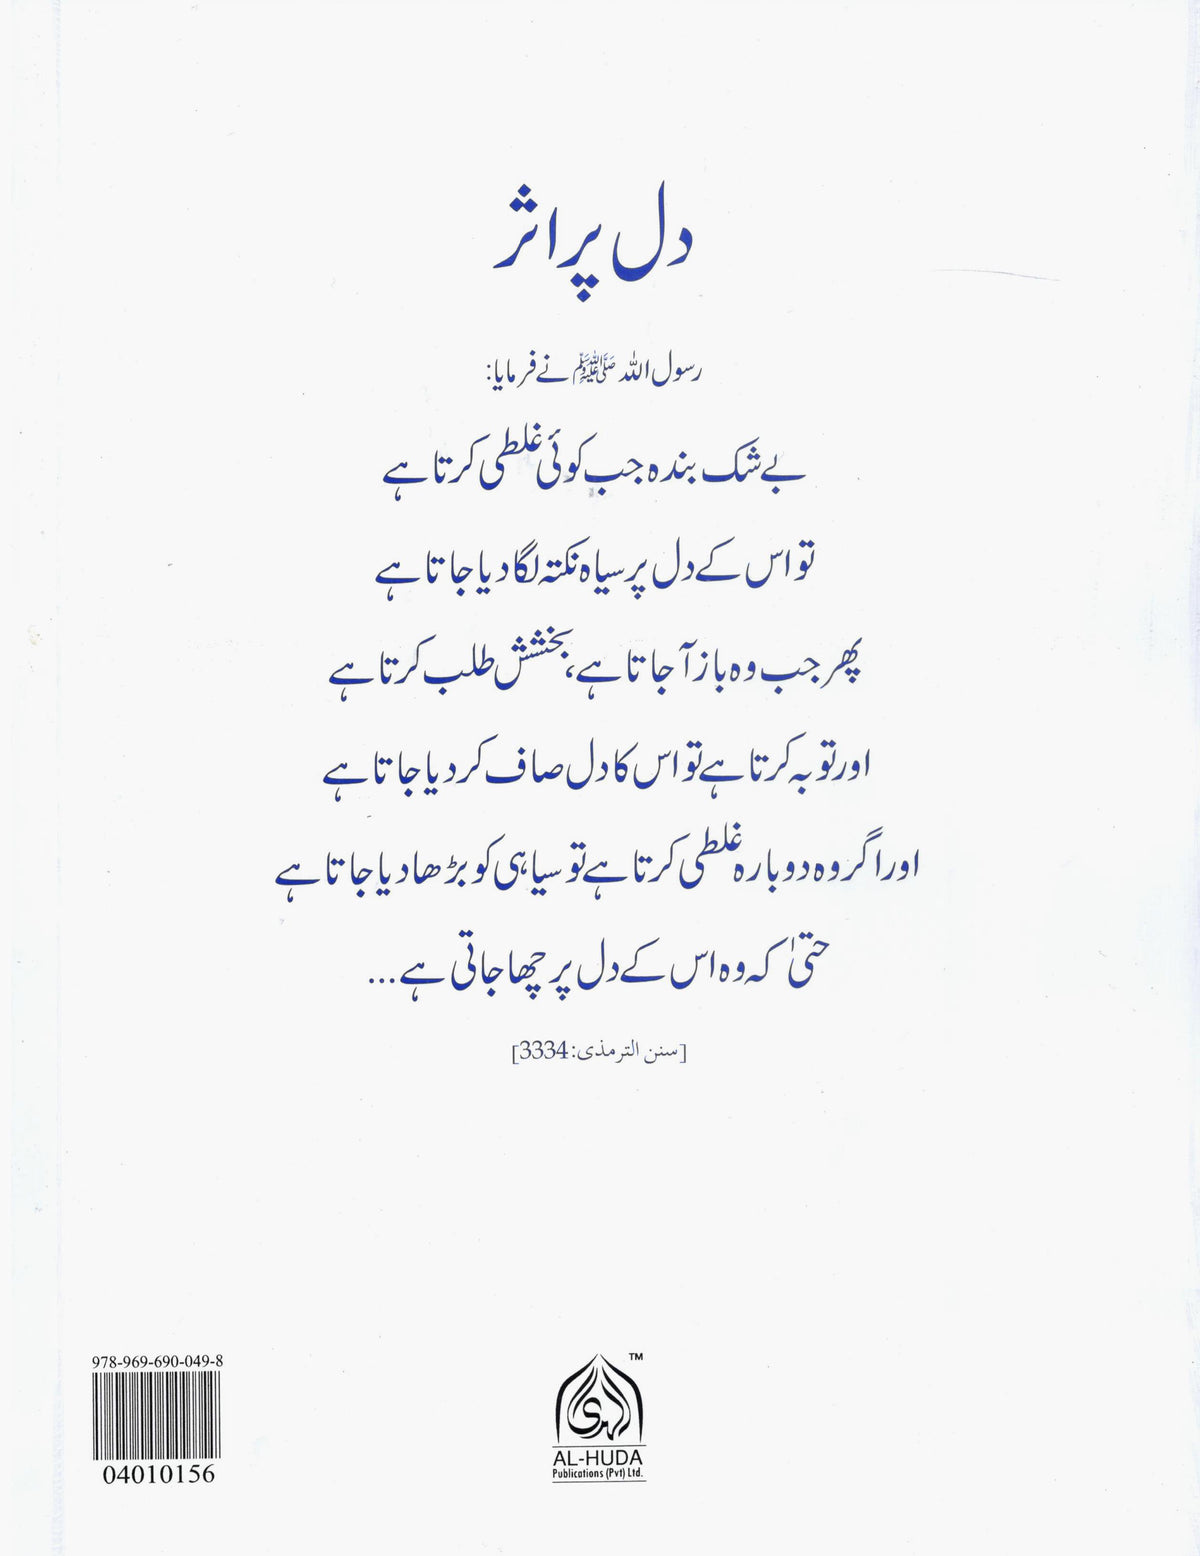 دل پر اثر
رسول اللہ ﷺ نے فرمایا:
بے شک بندہ جب کوئی غلطی کرتا ہے
تو اس کے دل پر سیاہ نکتہ لگا دیا جاتا ہے
پھر جب وہ باز آ جاتا ہے، بخشش طلب کرتا ہے
اور توبہ کرتا ہے تو اس کا دل صاف کر دیا جاتا ہے
اور اگر وہ دوبارہ غلطی کرتا ہے تو سیاہی کو بڑھا دیا جاتا ہے
حتیٰ کہ وہ اس کے دل پر چھا جاتی ہے...
[سنن الترمذی:3334]
978-969-690-049-8
04010156
الہدی
TM
AL-HUDA
Publications (Pvt) Ltd.